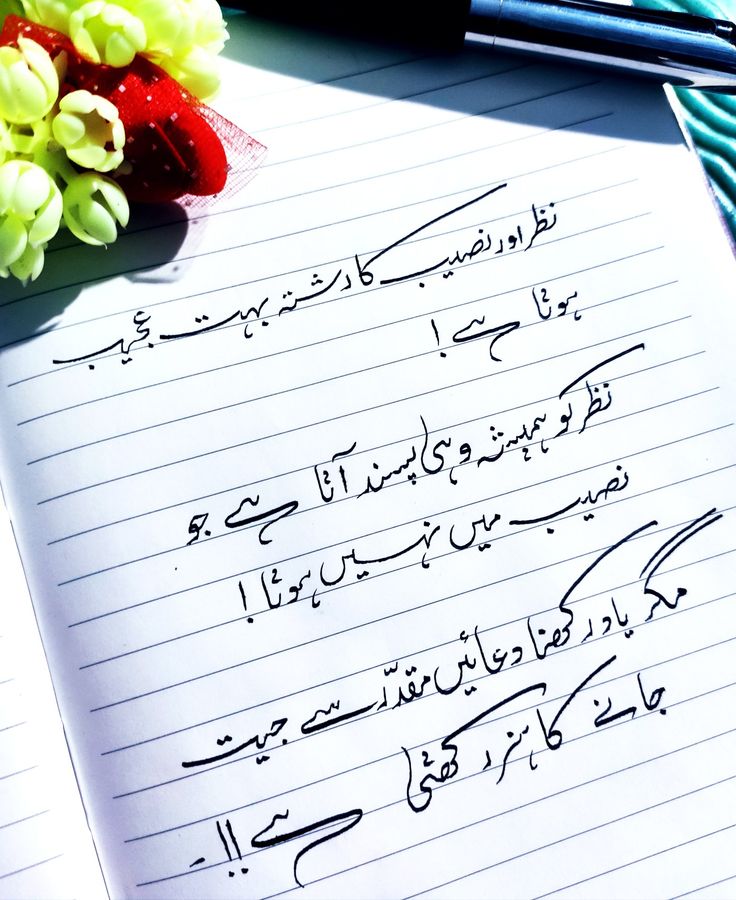 نظر اور نصیب کا رشتہ بہت عجیب
ہوتا ہے !
نظر کو ہمیشہ وہی پسند آتا ہے جو
نصیب میں نہیں ہوتا !
مگر یاد رکھنا دعائیں مقدّر سے جیت
جانے کا ہنر رکھتی ہے !!۔